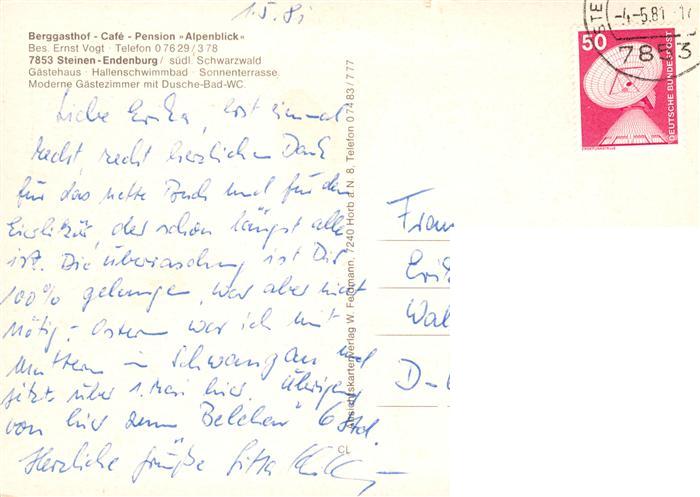 1.5.81
Berggasthof - Café - Pension »Alpenblick«
Bes. Ernst Vogt · Telefon 0 76 29 / 3 78
7853 Steinen-Endenburg / südl. Schwarzwald
Gästehaus · Hallenschwimmbad · Sonnenterrasse.
Moderne Gästezimmer mit Dusche-Bad-WC.
Liebe Erika, erst einmal
recht, recht herzlichen Dank
für das nette Buch und für den
Eierlikör, der schon längst alle
ist. Die Überraschung ist Dir
100% gelungen, war aber nicht
nötig. - Ostern war ich mit
Muttern in Schwangau und
jetzt über 1. Mai hier. Übrigens
von hier zum Belchen 6 Std.
Herzliche Grüße Gitta
Ansichtskartenverlag W. Fehmann, 7240 Horb a. N 8, Telefon 0 74 83 / 7 77
CL
-4.-5.81.-17
7853
50
DEUTSCHE BUNDESPOST
Frau
Eri
Wal
D-